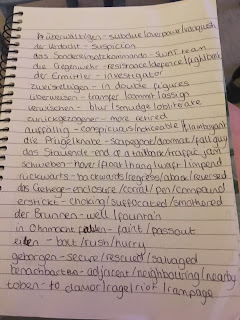 überwältigen - subdue/overpower/vanquish
der Verdacht - suspicion
das Sondereinsatzkommando - SWAT team
die Gegenwehr - resistance/defence/fightback
der Ermittler - investigator
zweistelligen - in double figures
überweisen - transfer/commit/assign
verwischen - blur/smudge/obliterate
zurückgezogener - more retired
auffällig - conspicuous/noticeable/flamboyant
die Prügelknabe - scapegoat/doormat/fall guy
das Stauende - end of a tailback/traffic jam
schweben - hover/float/hang/waft/impend
rückwärts - backwards/regress/aback/reversed
das Gehege - enclosure/corral/pen/compound
erstickt - choking/suffocated/smothered
der Brunnen - well/fountain
in Ohnmacht fallen - faint/passout
eilen - bolt/rush/hurry
geborgen - secure/rescued/salvaged
benachbarten - adjacent/neighbouring/nearby
toben - to clamor/rage/riot/rampage